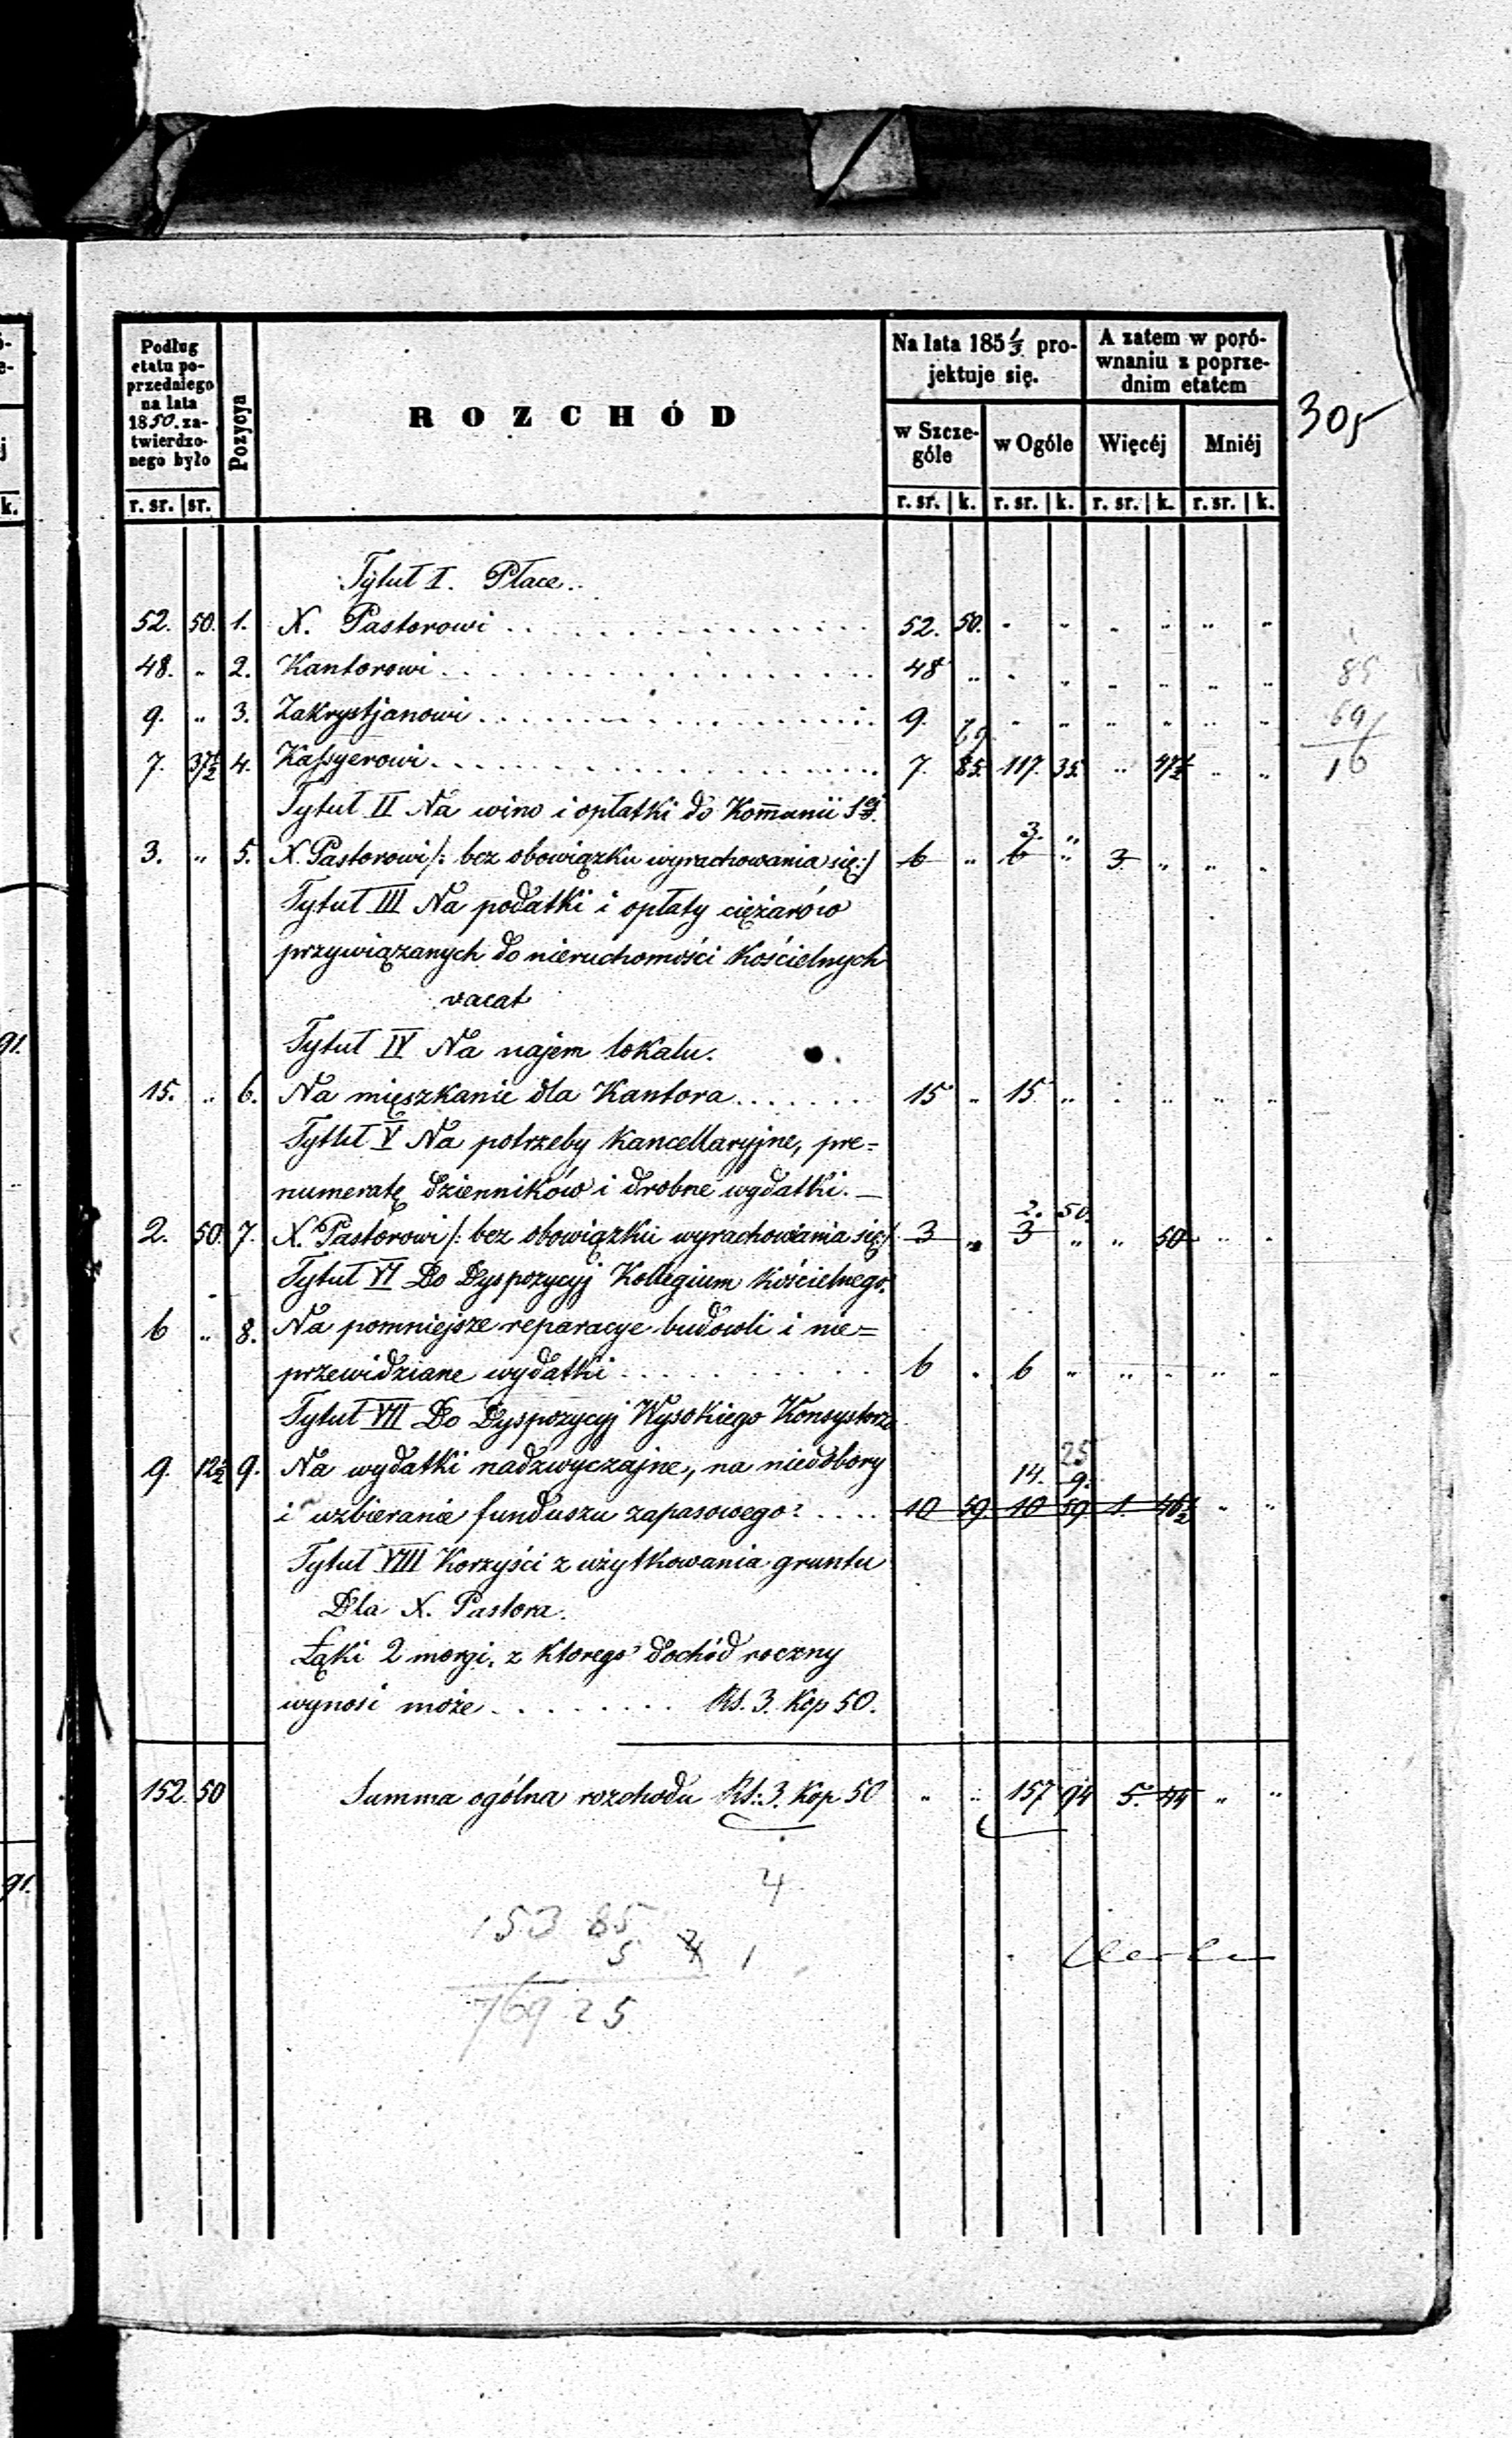 Podług
etatu po-
przedniego
na lata
1850. za-
twierdzo-
nego było
Pozycya
ROZCHÓD
Na lata 185 1/3 pro-
jektuje się.
A zatem w poró-
wnaniu z poprze-
dnim etatem
w Szcze-
góle
w Ogóle
Więcéj
Mniéj
305
r. sr. sr. r. sr. k. r. sr. k. r. sr. k. r. sr. k.
k.
Tytuł I. Płace.
52. 50. 1. X. Pastorowi . . . 52. 50. " " " " " "
48. " 2. Kantorowi . . . 48 " " " " " " "
9. " 3. Zakrystjanowi . . . 9. " " " " " " "
69
7. 37½ 4. Kassyerowi . . . 7. 85. 117. 35. " 47½ " "
85
69
16
Tytuł II Na wino i opłatki do Kom̄unii Sej.
3. "
3. " 5. X. Pastorowi /: bez obowiązku wyrachowania się :/ 6 " 6 " 3 " " "
Tytuł III Na podatki i opłaty ciężarów
przywiązanych do nieruchomości Kościelnych
vacat
91.
Tytuł IV Na najem lokalu.
15. " 6. Na mięszkanie dla Kantora . . . 15 " 15 " " " " "
Tytuł V Na potrzeby Kancellaryjne, pre=
numeratę dzienników i drobne wydatki. —
2. 50.
2. 50. 7. X. Pastorowi /: bez obowiązku wyrachowania się :/ 3 " 3 " " 50 " "
Tytuł VI Do Dyspozycyj Kollegium Kościelnego.
6 " 8. Na pomniejsze reparacye budowli i nie=
przewidziane wydatki . . . 6 " 6 " " " " "
Tytuł VII Do Dyspozycyj Wysokiego Konsystorza
25
14. 9.
9. 12½ 9. Na wydatki nadzwyczajne, na niedobory
i uzbieranie funduszu zapasowego . . . 10 59. 10 59 1. 46½ " "
Tytuł VIII Korzyści z użytkowania gruntu
Dla X. Pastora.
Łąki 2 morgi, z ktorego dochód roczny
wynosi może . . . Rs. 3. Kop 50.
152. 50 Summa ogólna rozchodu Rs: 3. Kop 50 " " 157 94 5. 44 " "
91.
4
153 85
5 1
769 25